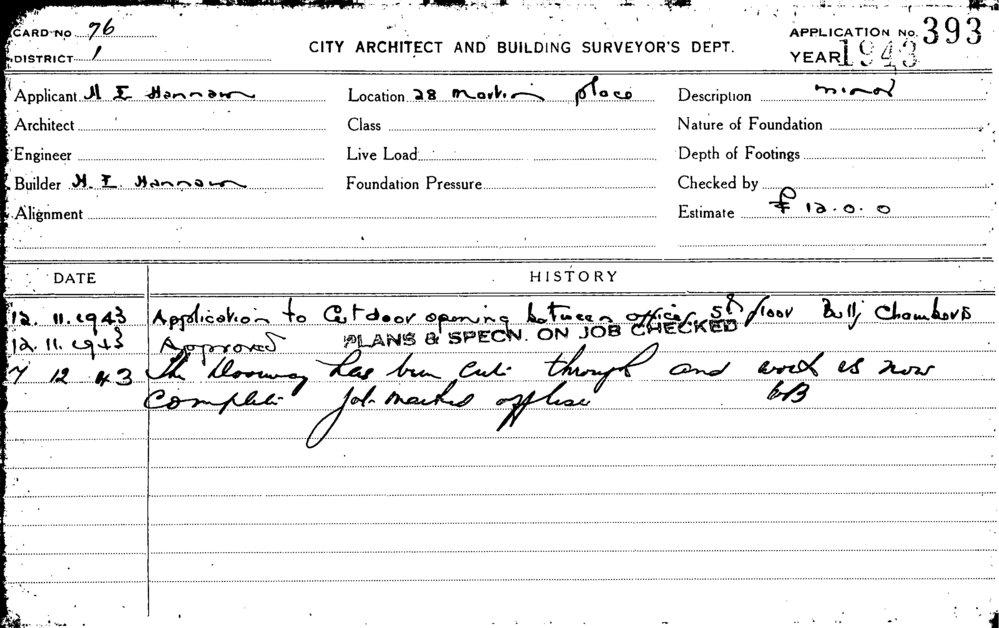 CARD NO 76
DISTRICT 1
CITY ARCHITECT AND BUILDING SURVEYOR'S DEPT.
APPLICATION No. 393
YEAR 1943
Applicant H E Hannam Location 28 Martin place Description minor
Architect Class Nature of Foundation
Engineer Live Load Depth of Footings
Builder H. E. Hannam Foundation Pressure Checked by
Alignment Estimate £ 12.0.0
DATE HISTORY
12. 11. 1943 Application to Cut door opening between offices 5th floor Chambers
12. 11. 1943 Approved PLANS & SPECN. ON JOB CHECKED
7 12 43 The Doorway has been cut through and work is now
complete Job marked off